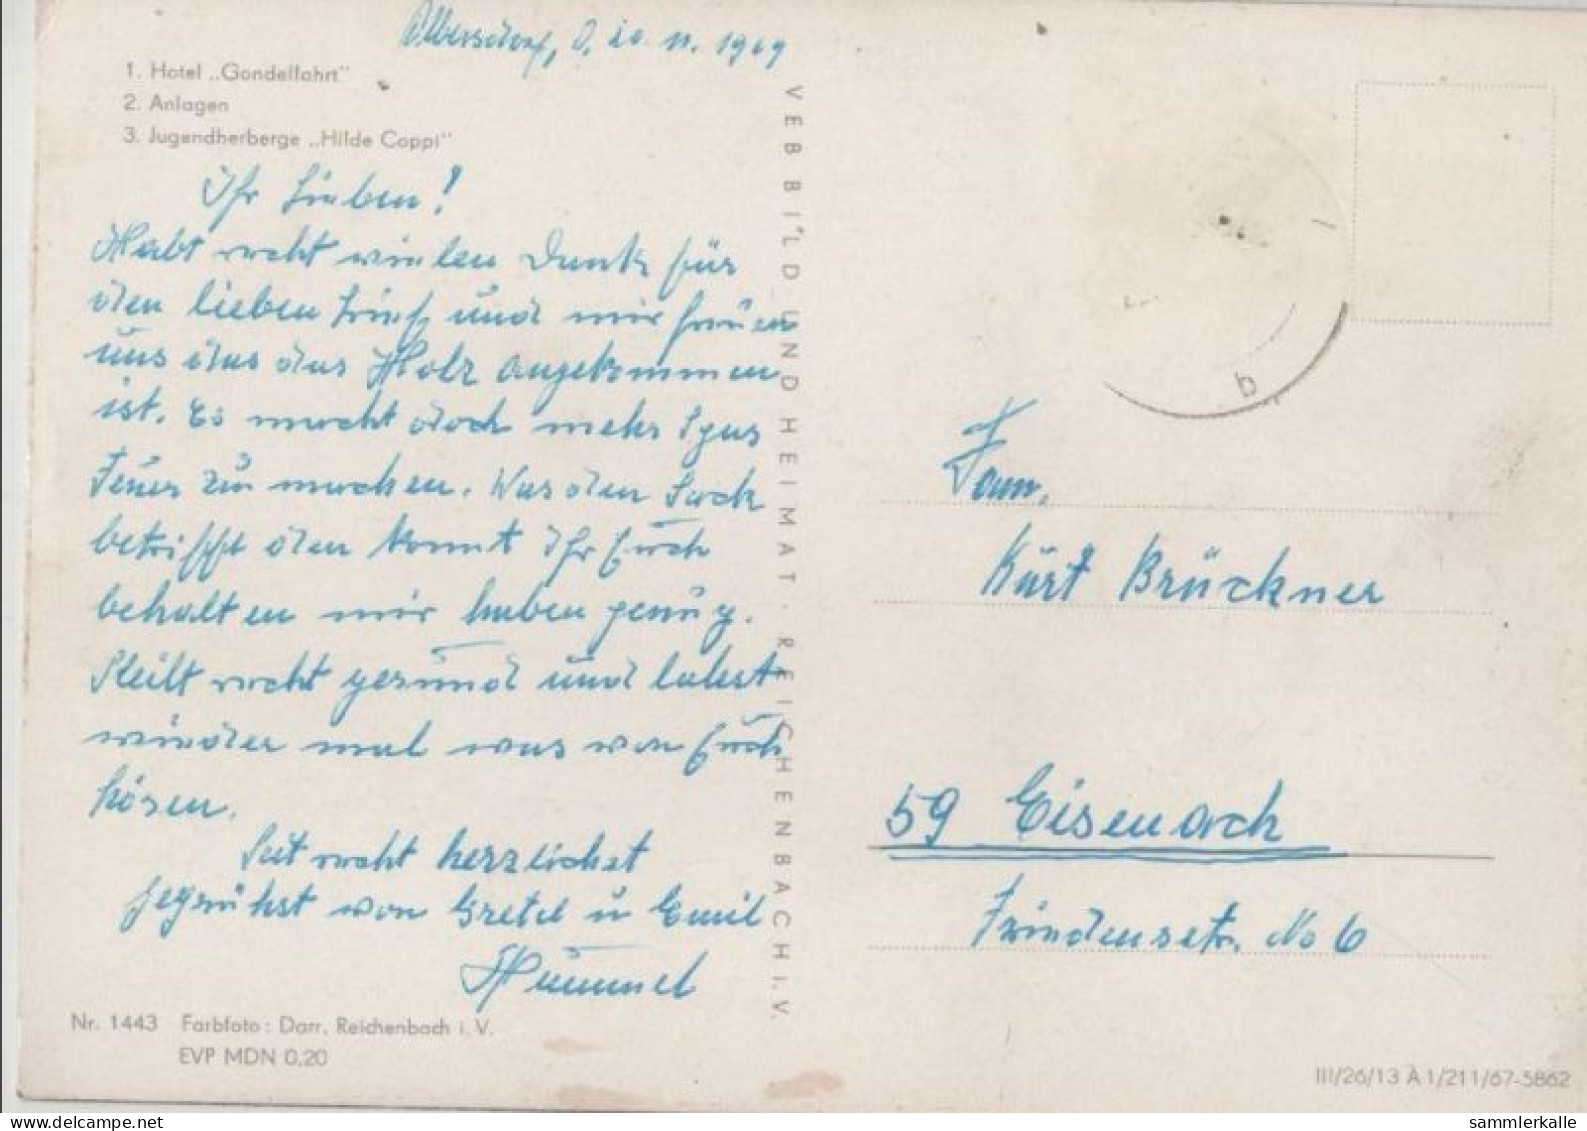 Olbersdorf, d. 20. 11. 1969
1. Hotel „Gondelfahrt"
2. Anlagen
3. Jugendherberge „Hilde Coppi"
Ihr Lieben!
Habt recht vielen Dank für
den lieben Brief und wir freuen
uns das das Holz angekommen
ist. Es macht doch mehr Spas
Feuer zu machen. Was den Sack
betrifft den konnt Ihr Euch
behalten wir haben genug.
Bleibt recht gesund und lahst
wieder mal was von Euch
hören.
Seit recht herzlichst
gegrühst von Gretel u Emil
Hummel
Nr. 1443 Farbfoto: Darr, Reichenbach i. V.
EVP MDN 0,20
VEB BILD UND HEIMAT · REICHENBACH i. V.
b
Fam.
Kurt Brückner
59 Eisenach
Friedensstr. No 6
III/26/13 A 1/211/67-5862
sammlerkalle